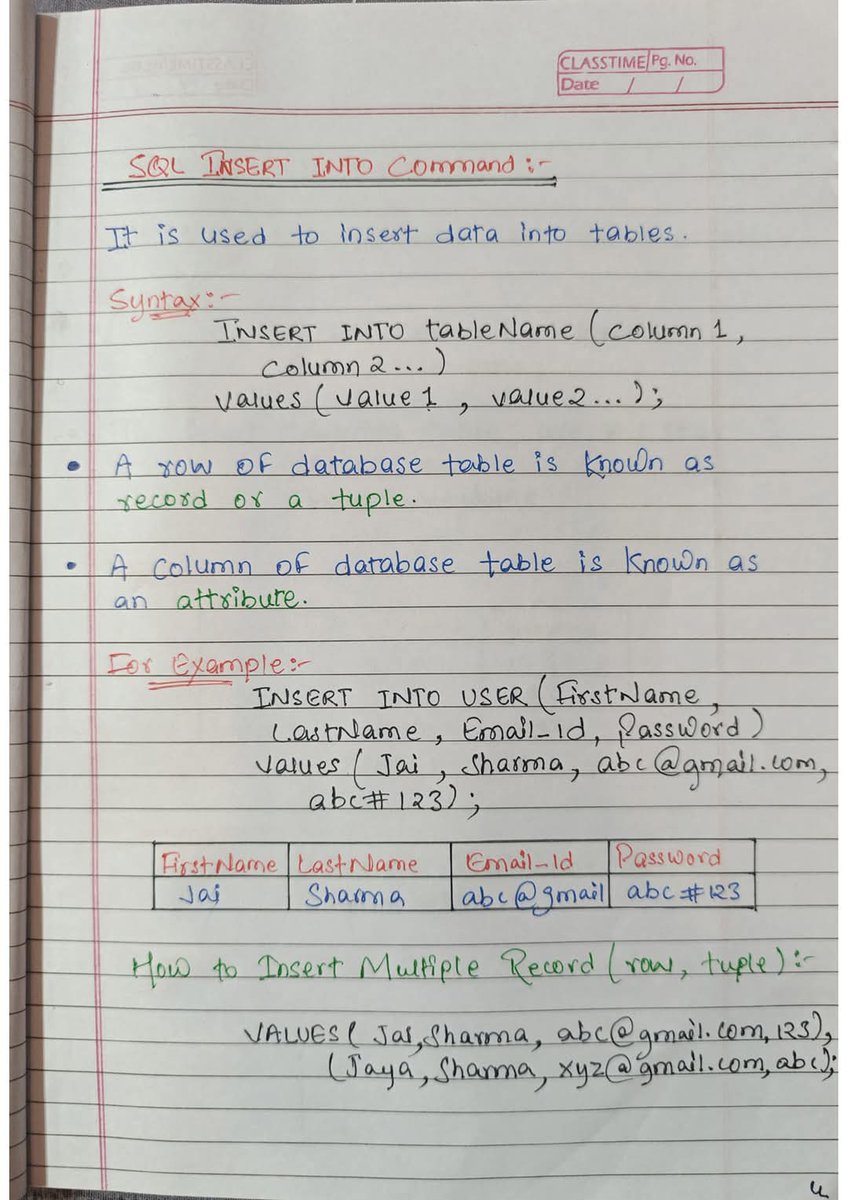 CLASSTIME Pg. No.
Date / /
SQL INSERT INTO Command :-
It is used to insert data into tables.
Syntax :-
INSERT INTO tableName (column 1,
column 2 ...)
values ( value 1 , value 2 ... ) ;
• A row of database table is known as
record or a tuple.
• A column of database table is known as
an attribute.
For Example :-
INSERT INTO USER ( FirstName ,
LastName , Email_Id , Password )
values ( Jai , Sharma , abc@gmail.com,
abc#123 ) ;
FirstName LastName Email_Id Password
Jai Sharma abc@gmail abc#123
How to Insert Multiple Record ( row, tuple ) :-
VALUES ( Jai, Sharma, abc@gmail.com, 123 ),
( Jaya, Sharma, xyz@gmail.com, abc );
4